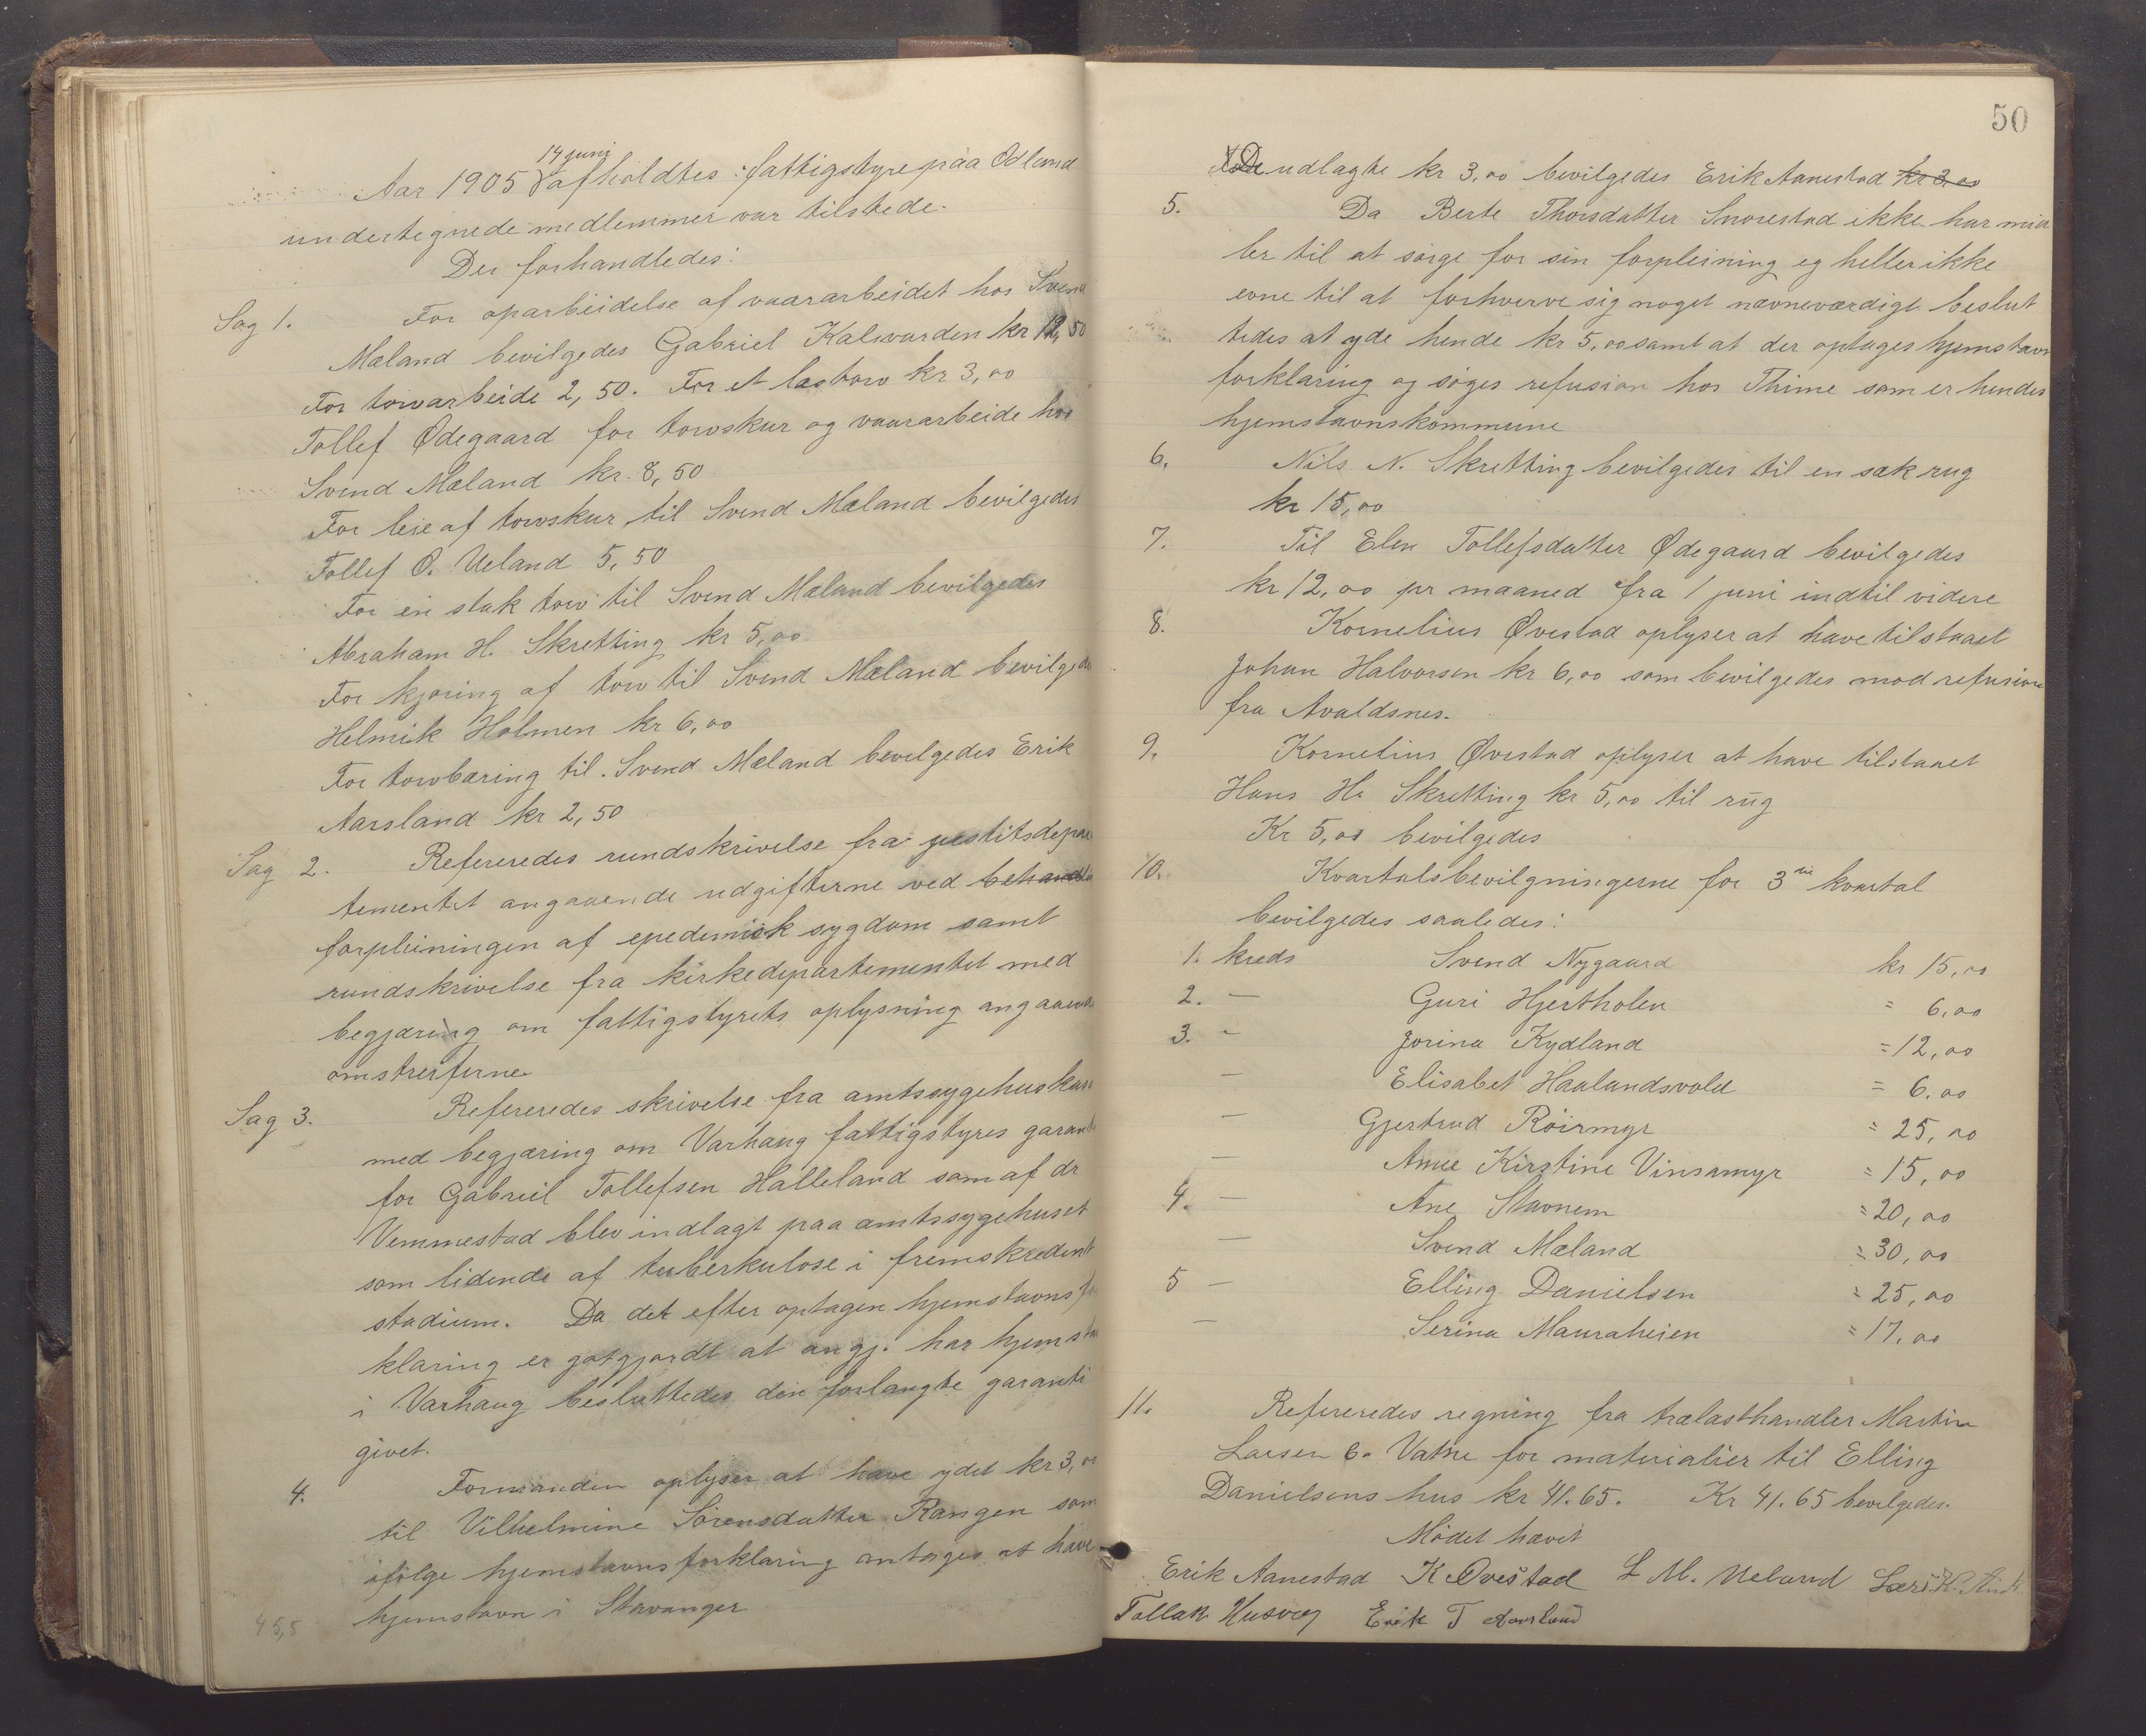 14 juni
Aar 1905 afholdtes fattigstyre paa Ødland
undertegnede medlemmer var tilstede.
Der forhandledes:
Sag 1. For oparbeidelse af vaararbeidet hos Svend
Mæland bevilgedes Gabriel Kalsvarden kr 12,50
For torvarbeide 2,50. For et læs torv kr 3,00
Tollef Ødegaard for torvskur og vaararbeide hos
Svend Mæland kr. 8,50
For leie af torvskur til Svend Mæland bevilgedes
Tollef O. Ueland 5,50
For en stak torv til Svend Mæland bevilgedes
Abraham H. Skretting kr 5,00
For kjøring af torv til Svend Mæland bevilgedes
Helmik Holmen kr 6,00
For torvbæring til Svend Mæland bevilgedes Erik
Aarsland kr 2,50
Sag 2. Refereredes rundskrivelse fra justitsdepar
tementet angaaende udgifterne ved behandle
forpleiningen af epedemisk sygdom samt
rundskrivelse fra kirkedepartementet med
begjæring om fattigstyrets oplysning angaaende
omstreiferne
Sag 3. Refereredes skrivelse fra amtssygehuskass
med begjæring om Varhaug fattigstyres garanti
for Gabriel Tollefsen Halleland som af dr
Vemmestad blev indlagt paa amtssygehuset
som lidende af tuberkulose i fremskredent
stadium. Da det efter optagen hjemstavnsfor
klaring er gotgjordt at angj. har hjemstavn
i Varhaug besluttedes den forlangte garanti
givet.
4. Formanden oplyser at have ydet kr 3,00
til Vilhelmine Sørensdatter Rangen som
ifølge hjemstavnsforklaring antages at have
hjemstavn i Stavanger
45,5
50
De udlagte kr 3,00 bevilgedes Erik Aanestad kr 3,00
5. Da Berte Thorsdatter Snorestad ikke har mid
ler til at sørge for sin forpleining og heller ikke
evne til at forhverve sig noget nævneværdigt beslut
tedes at yde hende kr 5,00 samt at der optages hjemstavns
forklaring og søges refusion hos Thime som er hendes
hjemstavnskommune
6. Nils N. Skretting bevilgedes til en sæk rug
kr 15,00
7. Til Elen Tollefsdatter Ødegaard bevilgedes
kr 12,00 pr maaned fra 1 juni indtil videre
8. Kornelius Øvestad oplyser at have tilstaaet
Johan Halvorsen kr 6,00 som bevilgedes mod refusion
fra Avaldsnes.
9. Kornelius Øvestad oplyser at have tilstaaet
Hans H. Skretting kr 5,00 til rug
Kr 5,00 bevilgedes
10. Kvartalsbevilgningerne for 3die kvartal
bevilgedes saaledes:
1. kreds Svend Nygaard kr 15,00
2. — Guri Hjertholen = 6,00
3. - Jorina Kydland = 12,00
— Elisabet Haalandsvold = 6.00
— Gjertrud Røirmyr = 25,00
— Anne Kirstine Vinsamyr = 15,00
4. — Ane Stavnem = 20,00
— Svend Mæland = 30,00
5 — Elling Danielsen = 25,00
— Serina Mauraheien = 17,00
11. Refereredes regning fra trælasthandler Martin
Larsen & Vatne for materialier til Elling
Danielsens hus kr 41.65. Kr 41.65 bevilgedes.
Mødet hævet
Erik Aanestad K Øvestad L M. Ueland
Tollak Husveg Erik T Aarsland